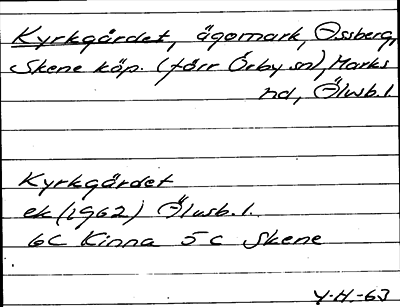 Kyrkgårdet, ägomark, Assberg,
Skene köp. (förr Örby sn), Marks
hd, Älvsb.l.
Kyrkgärdet
ek (1962) Älvsb.l.
6C Kinna 5c Skene
Y.H.-63